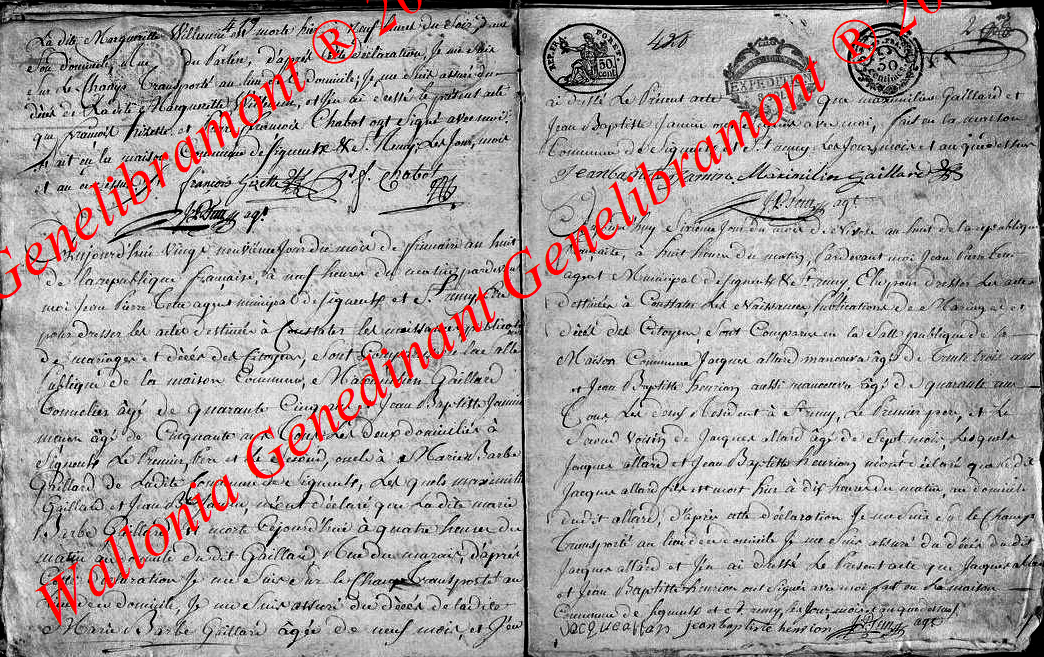 La dite Marguerite est morte hier à neuf heures du soir dans
son domicile, rue du Parlin, d'après cette déclaration, Je me suis
sur le champ Transporté au lieu de ce domicile, Je me suis assuré du
décès de La dite Marguerite et J'en ai dressé le présent acte
que françois Gizette et françois Chabot ont signé avec moi
fait en la maison Commune de Signeulx & St Remy Les Jour, mois
et an ci dessus
françois Gizette f. Chabot
agt
Aujourd'hui vingt neuvieme Jour du mois de frimaire an huit
de la republique française, à neuf heures du matin, pardevant
moi Jean Pierre agent municipal de Signeulx et St Remy Elu
pour dresser les actes destinés à Constater les naissances, publications
de mariages et décès des Citoyens, sont Comparus en la salle
publique de la maison Commune, Maximilien Gaillard
Tonnelier âgé de quarante Cinq ans et Jean Baptiste Jamin
âgé de Cinquante ans Tous Les deux domiciliés à
Signeulx Le Premier Père et le Second, oncle à Marie Barbe
Gaillard de Ladite Commune de Signeulx, Les quels maximilien
Gaillard et Jean Baptiste Jamin, m'ont déclaré que La dite marie
Barbe Gaillard est morte cejourd'hui à quatre heures du
matin au domicile du dit Gaillard, Rue du marais, d'après
Cette déclaration Je me suis sur le Champ Transporté au
lieu de ce domicile, Je me suis assuré du Décès de la dite
Marie Barbe Gaillard âgée de neuf mois, et J'en
420
50
cent
EXPEDITION
ai dressé Le Présent acte que maximilien Gaillard et
Jean Baptiste Jamin ont signé avec moi, fait en la maison
Commune de Signeulx et St Remy Les Jour, mois et an que dessus
Jean baptiste Jamin Maximilien gaillard
agt
Aujourd'huy sixieme Jour du mois de nivose an huit de la republique
française, à huit heures du matin, Pardevant moi Jean Pierre
agent Municipal de Signeulx & St Remy Elu pour dresser Les actes
destinés à Constater Les Naissances, Publications de Mariages et
décès des Citoyens, sont Comparus en la Salle publique de la
Maison Commune Jacques allard manouvrier âgé de trente trois ans
et Jean Baptiste henrion aussi manouvrier âgé de quarante ans
Tous Les deux résident à St Remy, Le Premier père, et Le
Second voisin de Jacques allard âgé de Sept mois, Lesquels
Jacques allard et Jean Baptiste henrion m'ont déclaré que Le dit
Jacques allard fils est mort hier à dix heures du matin, au domicile
du dit allard, D'après cette déclaration Je me suis sur le Champ
Transporté au lieu de ce domicile Je me suis assuré du décès du dit
Jacques allard et J'en ai dressé Le Présent acte que Jacques allard
et Jean Baptiste henrion ont signé avec moi fait en la maison
Commune de Signeulx et St Remy, les Jour mois et an que dessus
Jacque allard jean baptiste henrion agt
Wallonia Genedinant Genelibramont ® 20
Genelibramont ® 20